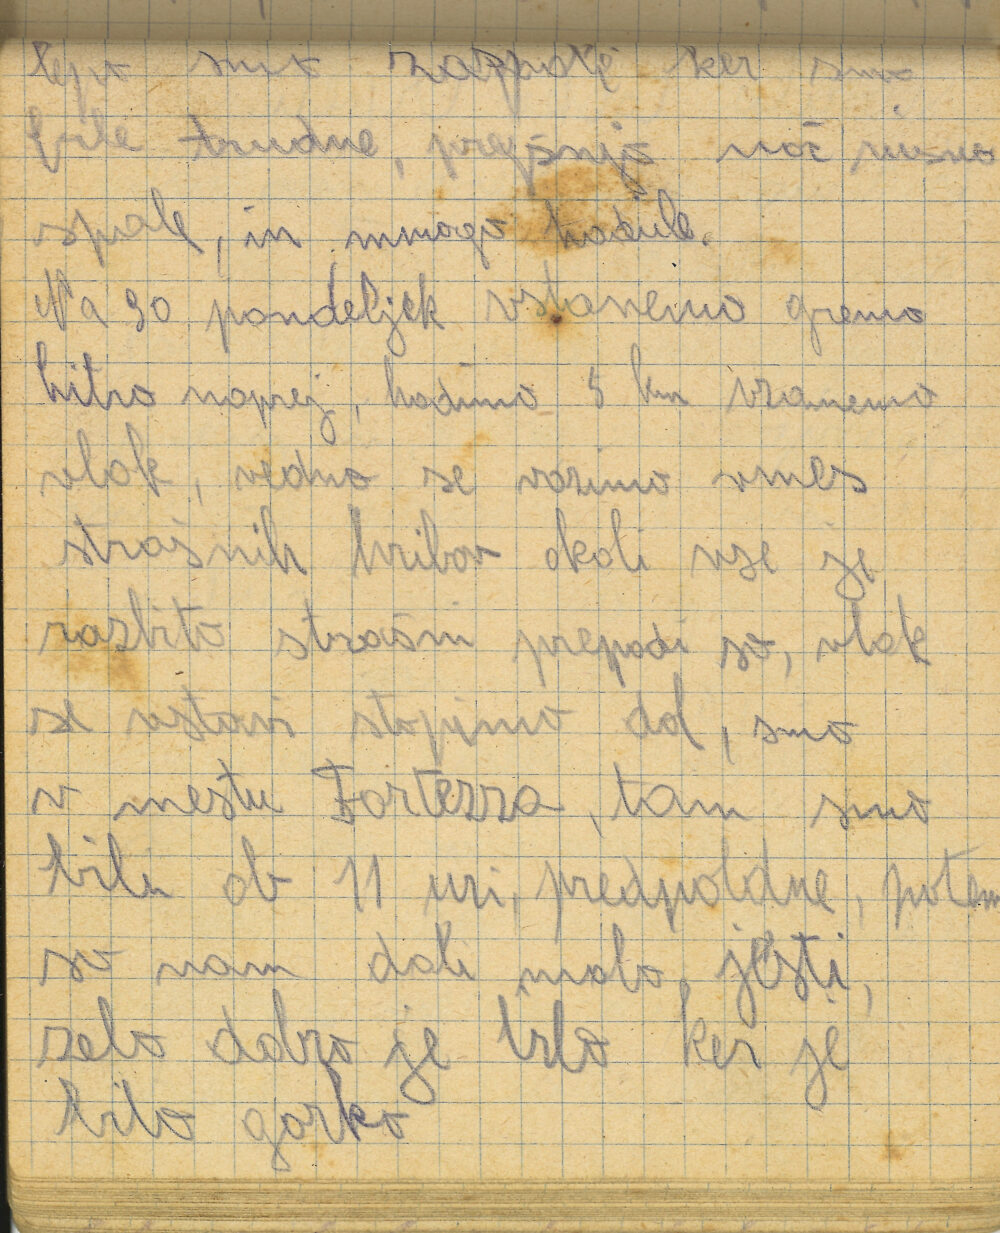 lepo smo zaspale ker smo
bile trudne, prejšnjo noč nismo
spale, in mnogo hodile.
Na 30 pondeljek vstanemo gremo
hitro naprej, hodimo 5 km vzamemo
vlak, vedno se vozimo vmes
strašnih hribov okoli vse je
razbito strašni prepadi so, vlak
se vstavi stopimo dol, smo
v mestu Fortezza, tam smo
bili ob 11 uri, predpoldne, potem
so nam dali malo, jesti,
zelo dobro je bilo ker je
bilo gorko